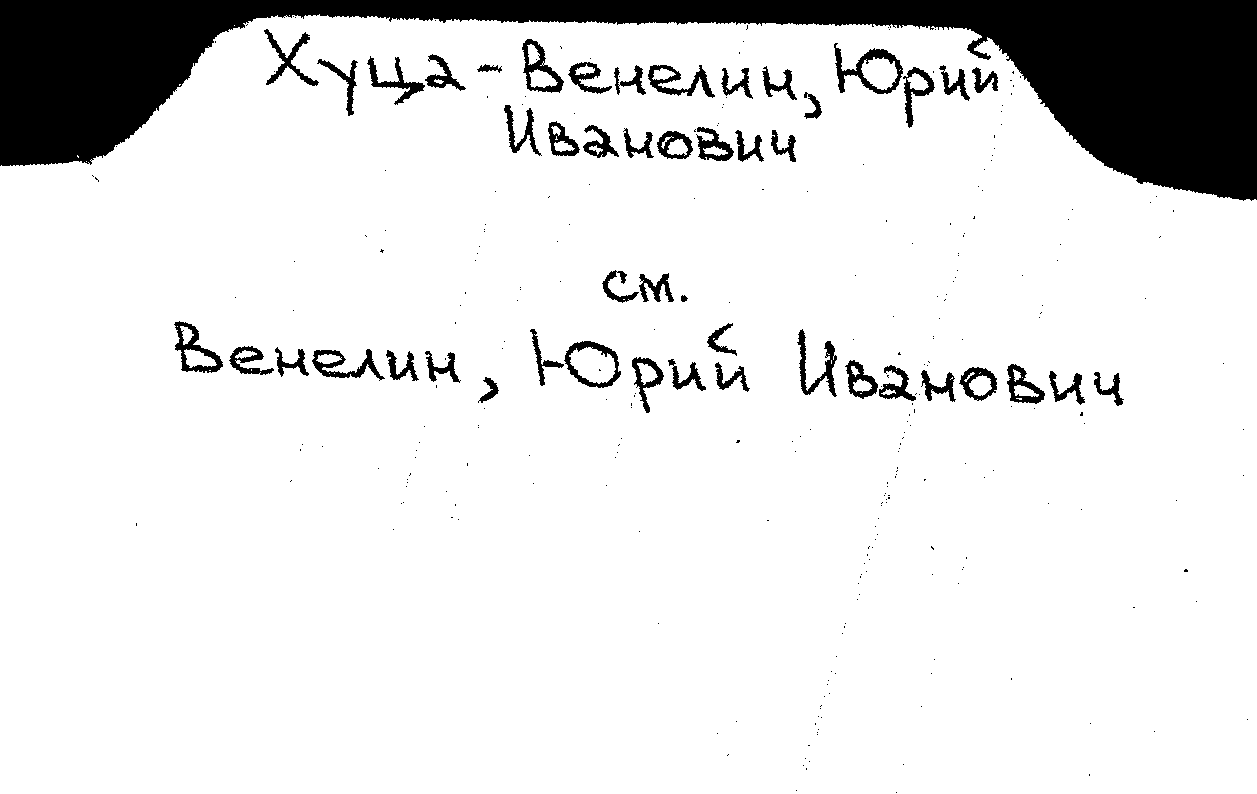 Хуца-Венелин, Юрий
Иванович
см.
Венелин, Юрий Иванович